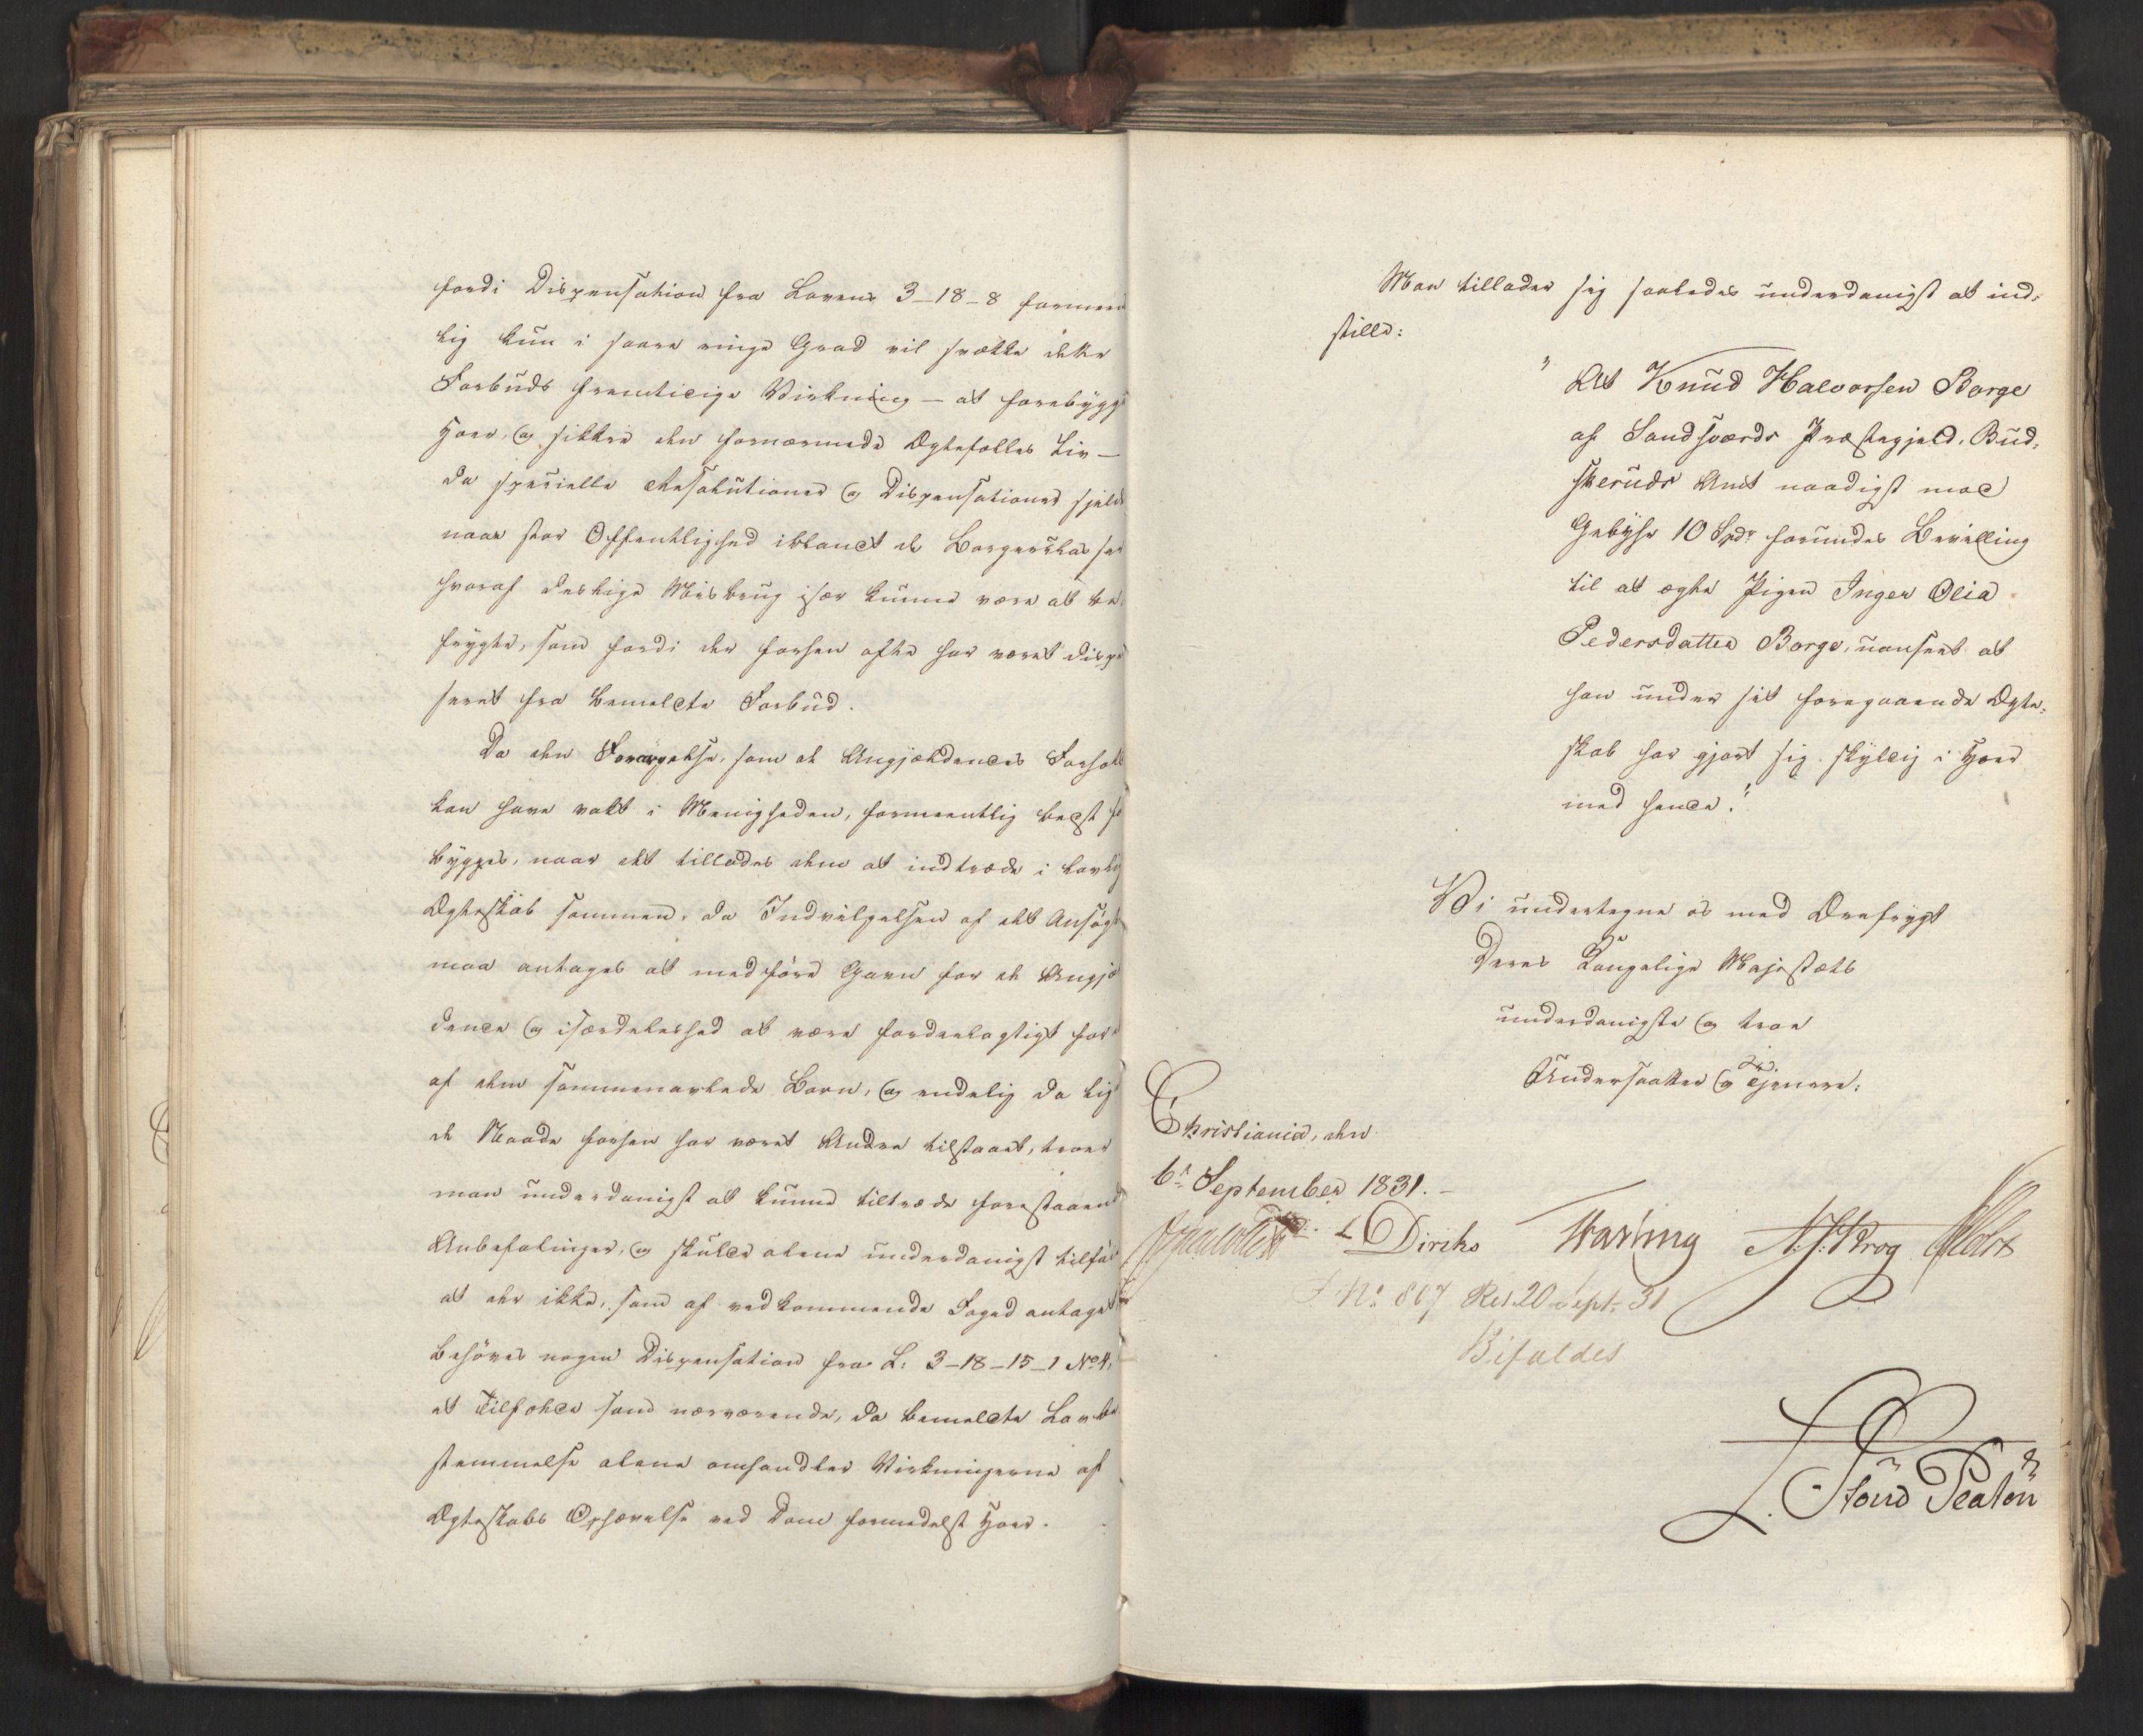 fordi Dispensation fra Lovens 3-18-8 formeent
lig kun i saare ringe Grad vil svække dette
Forbuds fremtidige Virkning – at forebygge
Hoer, og sikkre den fornærmede Ægtefælles Liv –
da specielle Resolutioner og Dispensationer sjeld
naae stor Offentlighed iblandt de Borgerklasser
hvoraf deslige Misbrug især kunne være at be,
frygte, som fordi der forhen ofte har været dispen
seret fra bemeldte Forbud.
Da den Forargelse, som de Angjældendes Forhold
kan have vakt i Menigheden, formeentlig bedst fore
bygges, naar det tillades dem at indtræde i lovlig
Ægteskab sammen, da Indvilgelsen af det Ansøgte
maa antages at medføre Gavn for de Angjæl
dende og isærdeleshed at være fordeelagtigt for
af dem sammenavlede Børn, og endelig da lig
de Naade forhen har været Andre tilstaaet, troer
man underdanigst at kunne tiltræde forestaaende
Anbefalinger, og skulde alene underdanigst tilføie
at der ikke, som af vedkommende Foged antaget,
behøves nogen Dispensation fra L: 3-18-15-1 No 4,
et Tilfælde som nærværende, da bemeldte Lovbe
stemmelse alene omhandler Virkningerne af
Ægteskabs Ophævelse ved Dom formedelst Hoer.
Man tillader sig saaledes underdanigst at ind-
stille:
"At Knud Halvorsen Borge
af Sandsværds Præstegjeld, Bud-
skeruds Amt naadigst mod
Gebyhr 10 Spdr forundes Bevilling
til at ægte Pigen Inger Olia
Pedersdatter Borge, uanseet at
han under sit foregaaende Ægte-
skab har gjort sig skyldig i Hoer
med hende."
Vi undertegne os med Ærefrygt
Deres Kongelige Majestæts
underdanigste og troe
Undersaatter og Tjenere:
Christiania, den
6te September 1831.
Diriks Fasting N. J. Krog
No 807 Res. 20 Sept. 31
Bifaldes